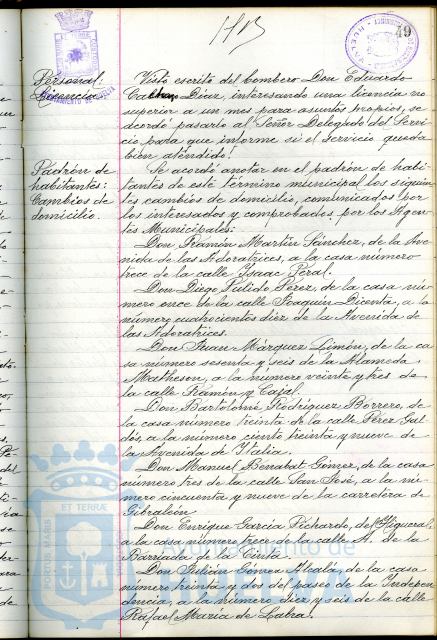 49
Personal.
Licencia.
Visto escrito del bombero Don Eduardo
Díaz, interesando una licencia no
superior a un mes para asuntos propios, se
acordó pasarlo al Señor Delegado del Servi-
cio para que informe si el servicio queda
bien atendido.
Padrón de
habitantes:
Cambios de
domicilio.
Se acordó anotar en el padrón de habi-
tantes de este término municipal los siguien-
tes cambios de domicilio, comunicados por
los interesados y comprobados por los Agen-
tes Municipales:
Don Ramón Martín Sánchez, de la Ave-
nida de las Adoratrices, a la casa número
trece de la calle Isaac Peral.
Don Diego Pulido Pérez, de la casa nú-
mero once de la calle Joaquín Dicenta, a la
número cuatrocientos diez de la Avenida de
las Adoratrices.
Don Juan Márquez Limón, de la ca-
sa número sesenta y seis de la Alameda
Matheson, a la número veinte y tres de
la calle Ramón y Cajal.
Don Bartolomé Rodríguez Borrero, de
la casa número treinta de la calle Pérez Gal-
dós, a la número ciento treinta y nueve de
la Avenida de Italia.
Don Manuel Benabat Gómez, de la casa
número tres de la calle San José, a la nú-
mero cincuenta y nueve de la carretera de
Gibraleón
Don Enrique García Pichardo, de Higueral,
a la casa número trece de la calle A. de la
Barriada de la Cinta.
Don Julián Gómez Alcalá, de la casa
número treinta y dos del paseo de la Indepen-
dencia, a la número diez y seis de la calle
Rafael María de Labra.
PORTUS MARIS ET TERRAE
Ayuntamiento de